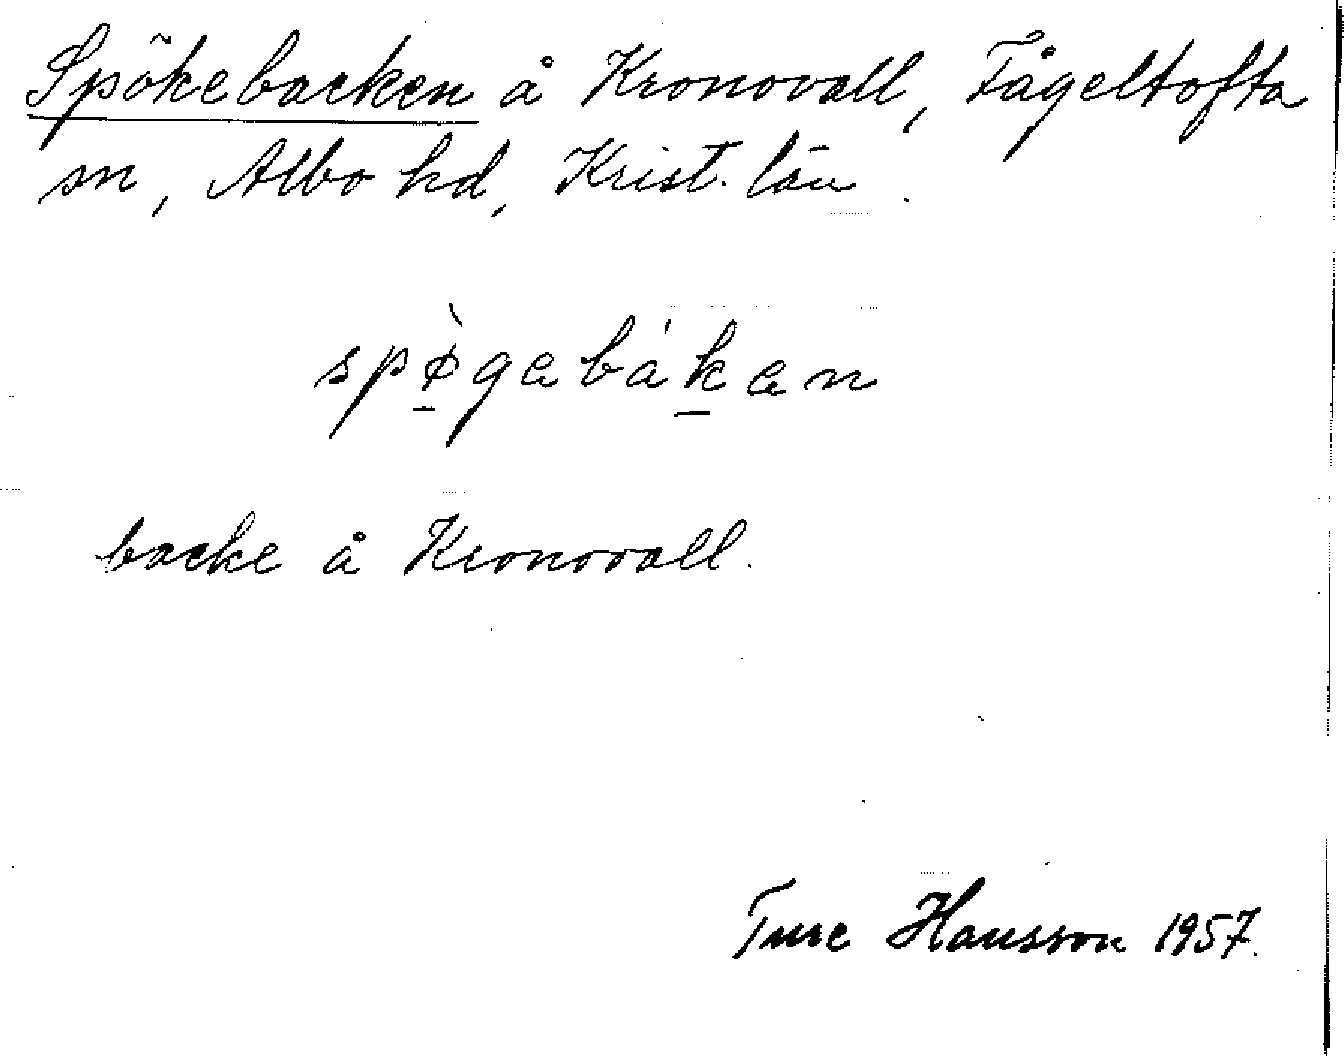 Spökebacken å Kronovall, Fågeltofta
sn, Albo hd, Krist. län.
spø̀gebáken
backe å Kronovall.
Ture Hansson 1957.